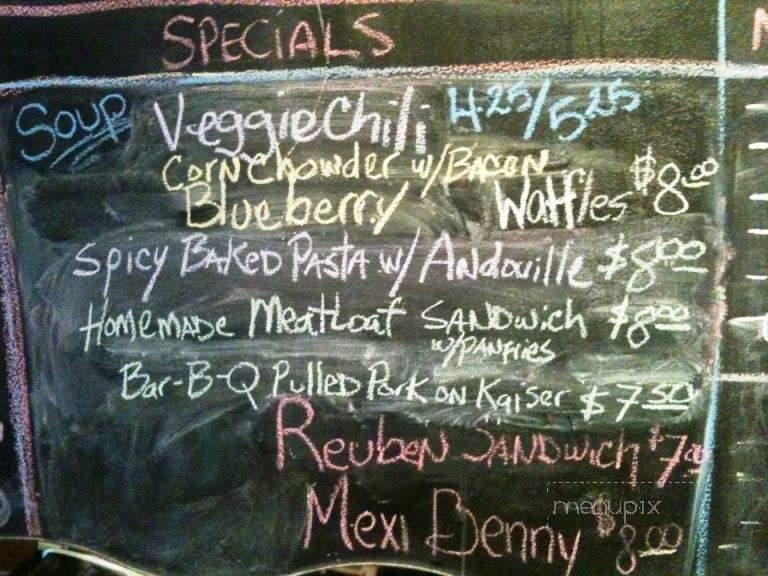 SPECIALS
Soup Veggie Chili 4.25/5.25
Corn Chowder w/ Bacon
Blueberry Waffles $8.00
Spicy Baked Pasta w/ Andouille $8.00
Homemade Meatloaf Sandwich $8.00
w/ Panfries
Bar-B-Q Pulled Pork on Kaiser $7.50
Reuben Sandwich $7.00
Mexi Benny $8.00
menupix